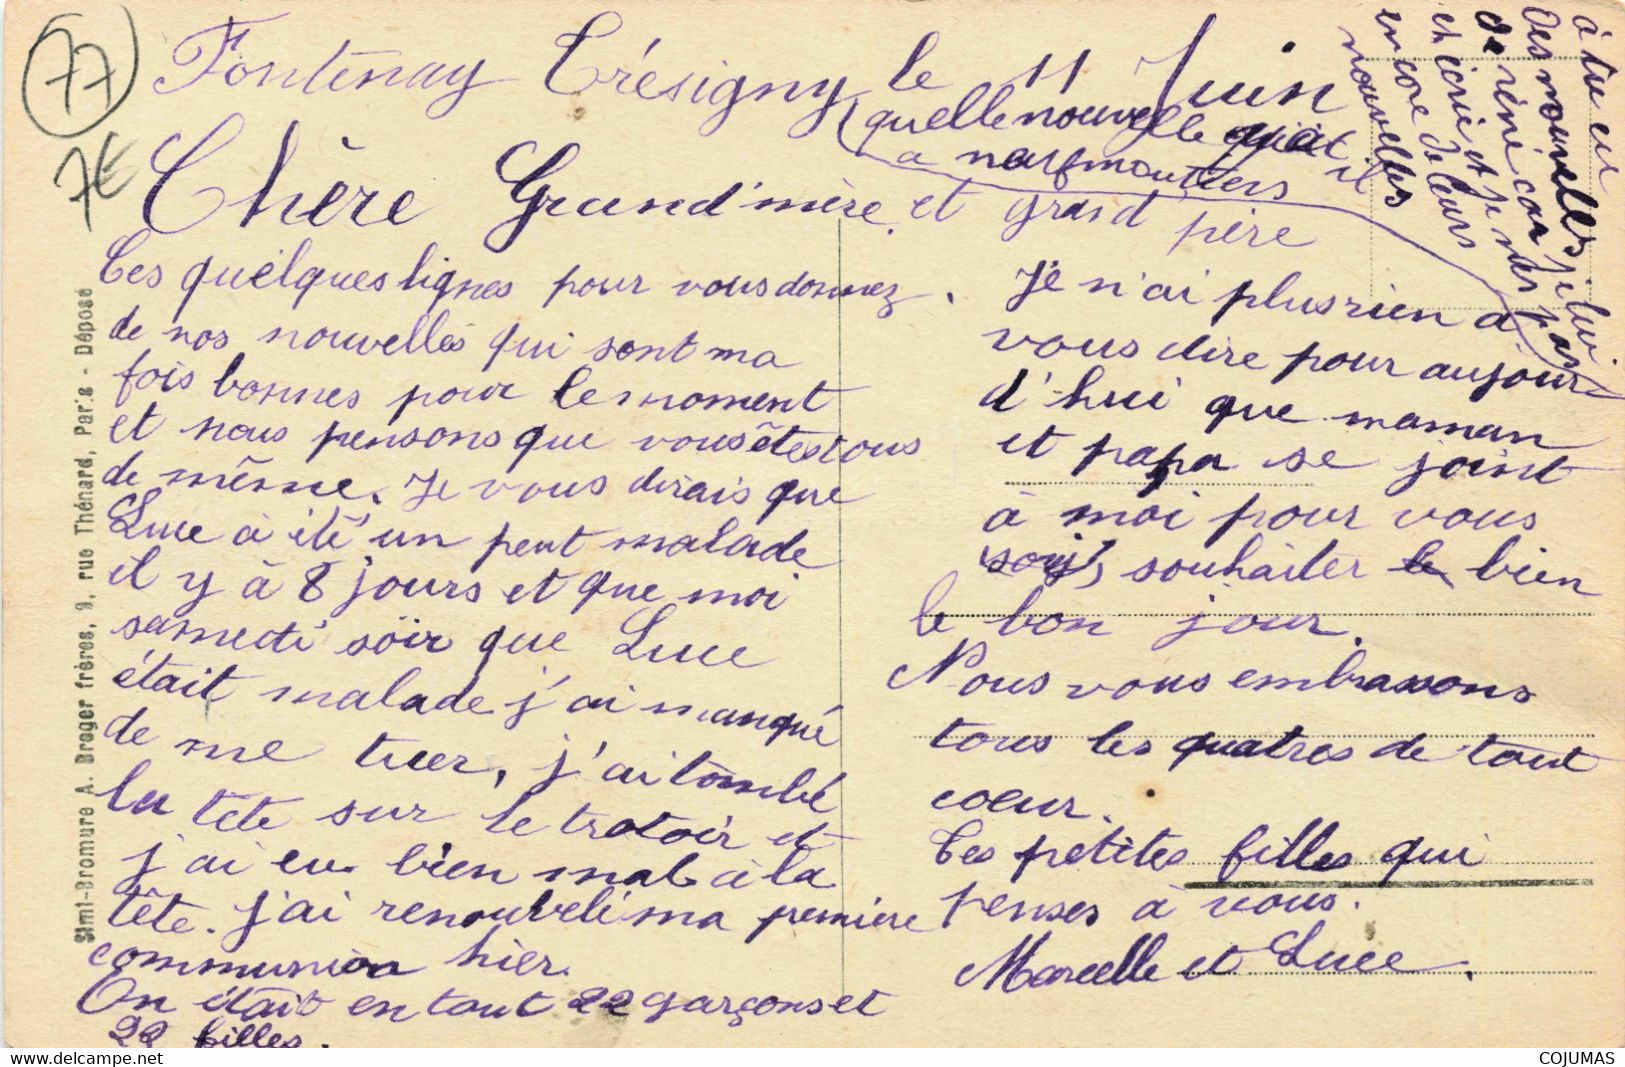 77
7€
Fontenay Trésigny le 11 Juin
quelle nouvelle
a
Chère Grand'mère et grand père
Ces quelques lignes pour vous donnez
de nos nouvelles qui sont ma
fois bonnes pour le moment
et nous pensons que vous êtes tous
de même. Je vous dirais que
Luce à été un peut malade
il y à 8 jours et que moi
samedi soir que Luce
était malade j'ai manqué
de me tuer, j'ai tombé
la tête sur le trotoir et
j'ai eu bien mal à la
tête. j'ai renouvelé ma premiere
communion hier.
On était en tout 22 garçons et
22 filles.
Je n'ai plus rien a
vous dire pour aujour
d'hui que maman
et papa se joint
à moi pour vous
souhaiter le bien
le bon jour.
Nous vous embrassons
tous les quatres de tout
coeur.
Tes petites filles qui
penses à vous.
Marcelle et Luce.
à tu eu
Des nouvelles
de réné car je lui
et écrie et je n'es pas
encore de leurs
nouvelles
Simi-Bromure A. Breger frères, 9, rue Thénard, Paris - Déposé
COJUMAS